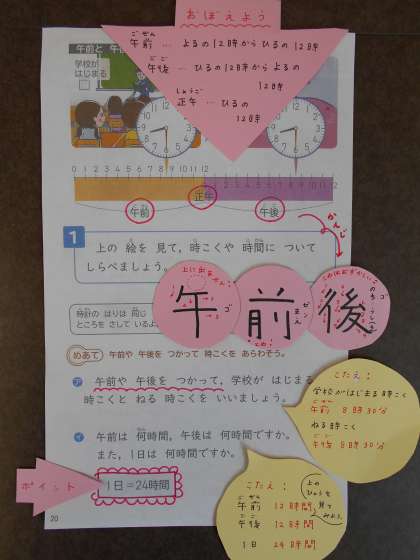 おぼえよう
午前 … よるの12時からひるの12時
午後 … ひるの12時からよるの
12時
正午 … ひるの
12時
午前と 午
学校が
はじまる
0 1 2 3 4 5 6 7 8 9 10 11 12 1 2 3 4 5 6 7 8 9 10 11 12
正午
午前
午後
1
上の 絵を 見て、時こくや 時間に ついて
しらべましょう。
上に出ません!
午 ゴ
前 ゼン まえ
後 ゴ
時計の はりは 同じ
ところを さして いるよ
めあて 午前や 午後を つかって 時こくを あらわそう。
ア 午前や 午後を つかって、学校が はじまる
時こくと ねる 時こくを いいましょう。
イ 午前は 何時間、午後は 何時間ですか。
また、1日は 何時間ですか。
こたえ:
学校がはじまる時こく
午前 8時30分
ねる時こく
午後 8時30分
ポイント
1日=24時間
こたえ:
午前 12時間
午後 12時間
1日 24時間
上の
ひょうを
見て
みよう。
20